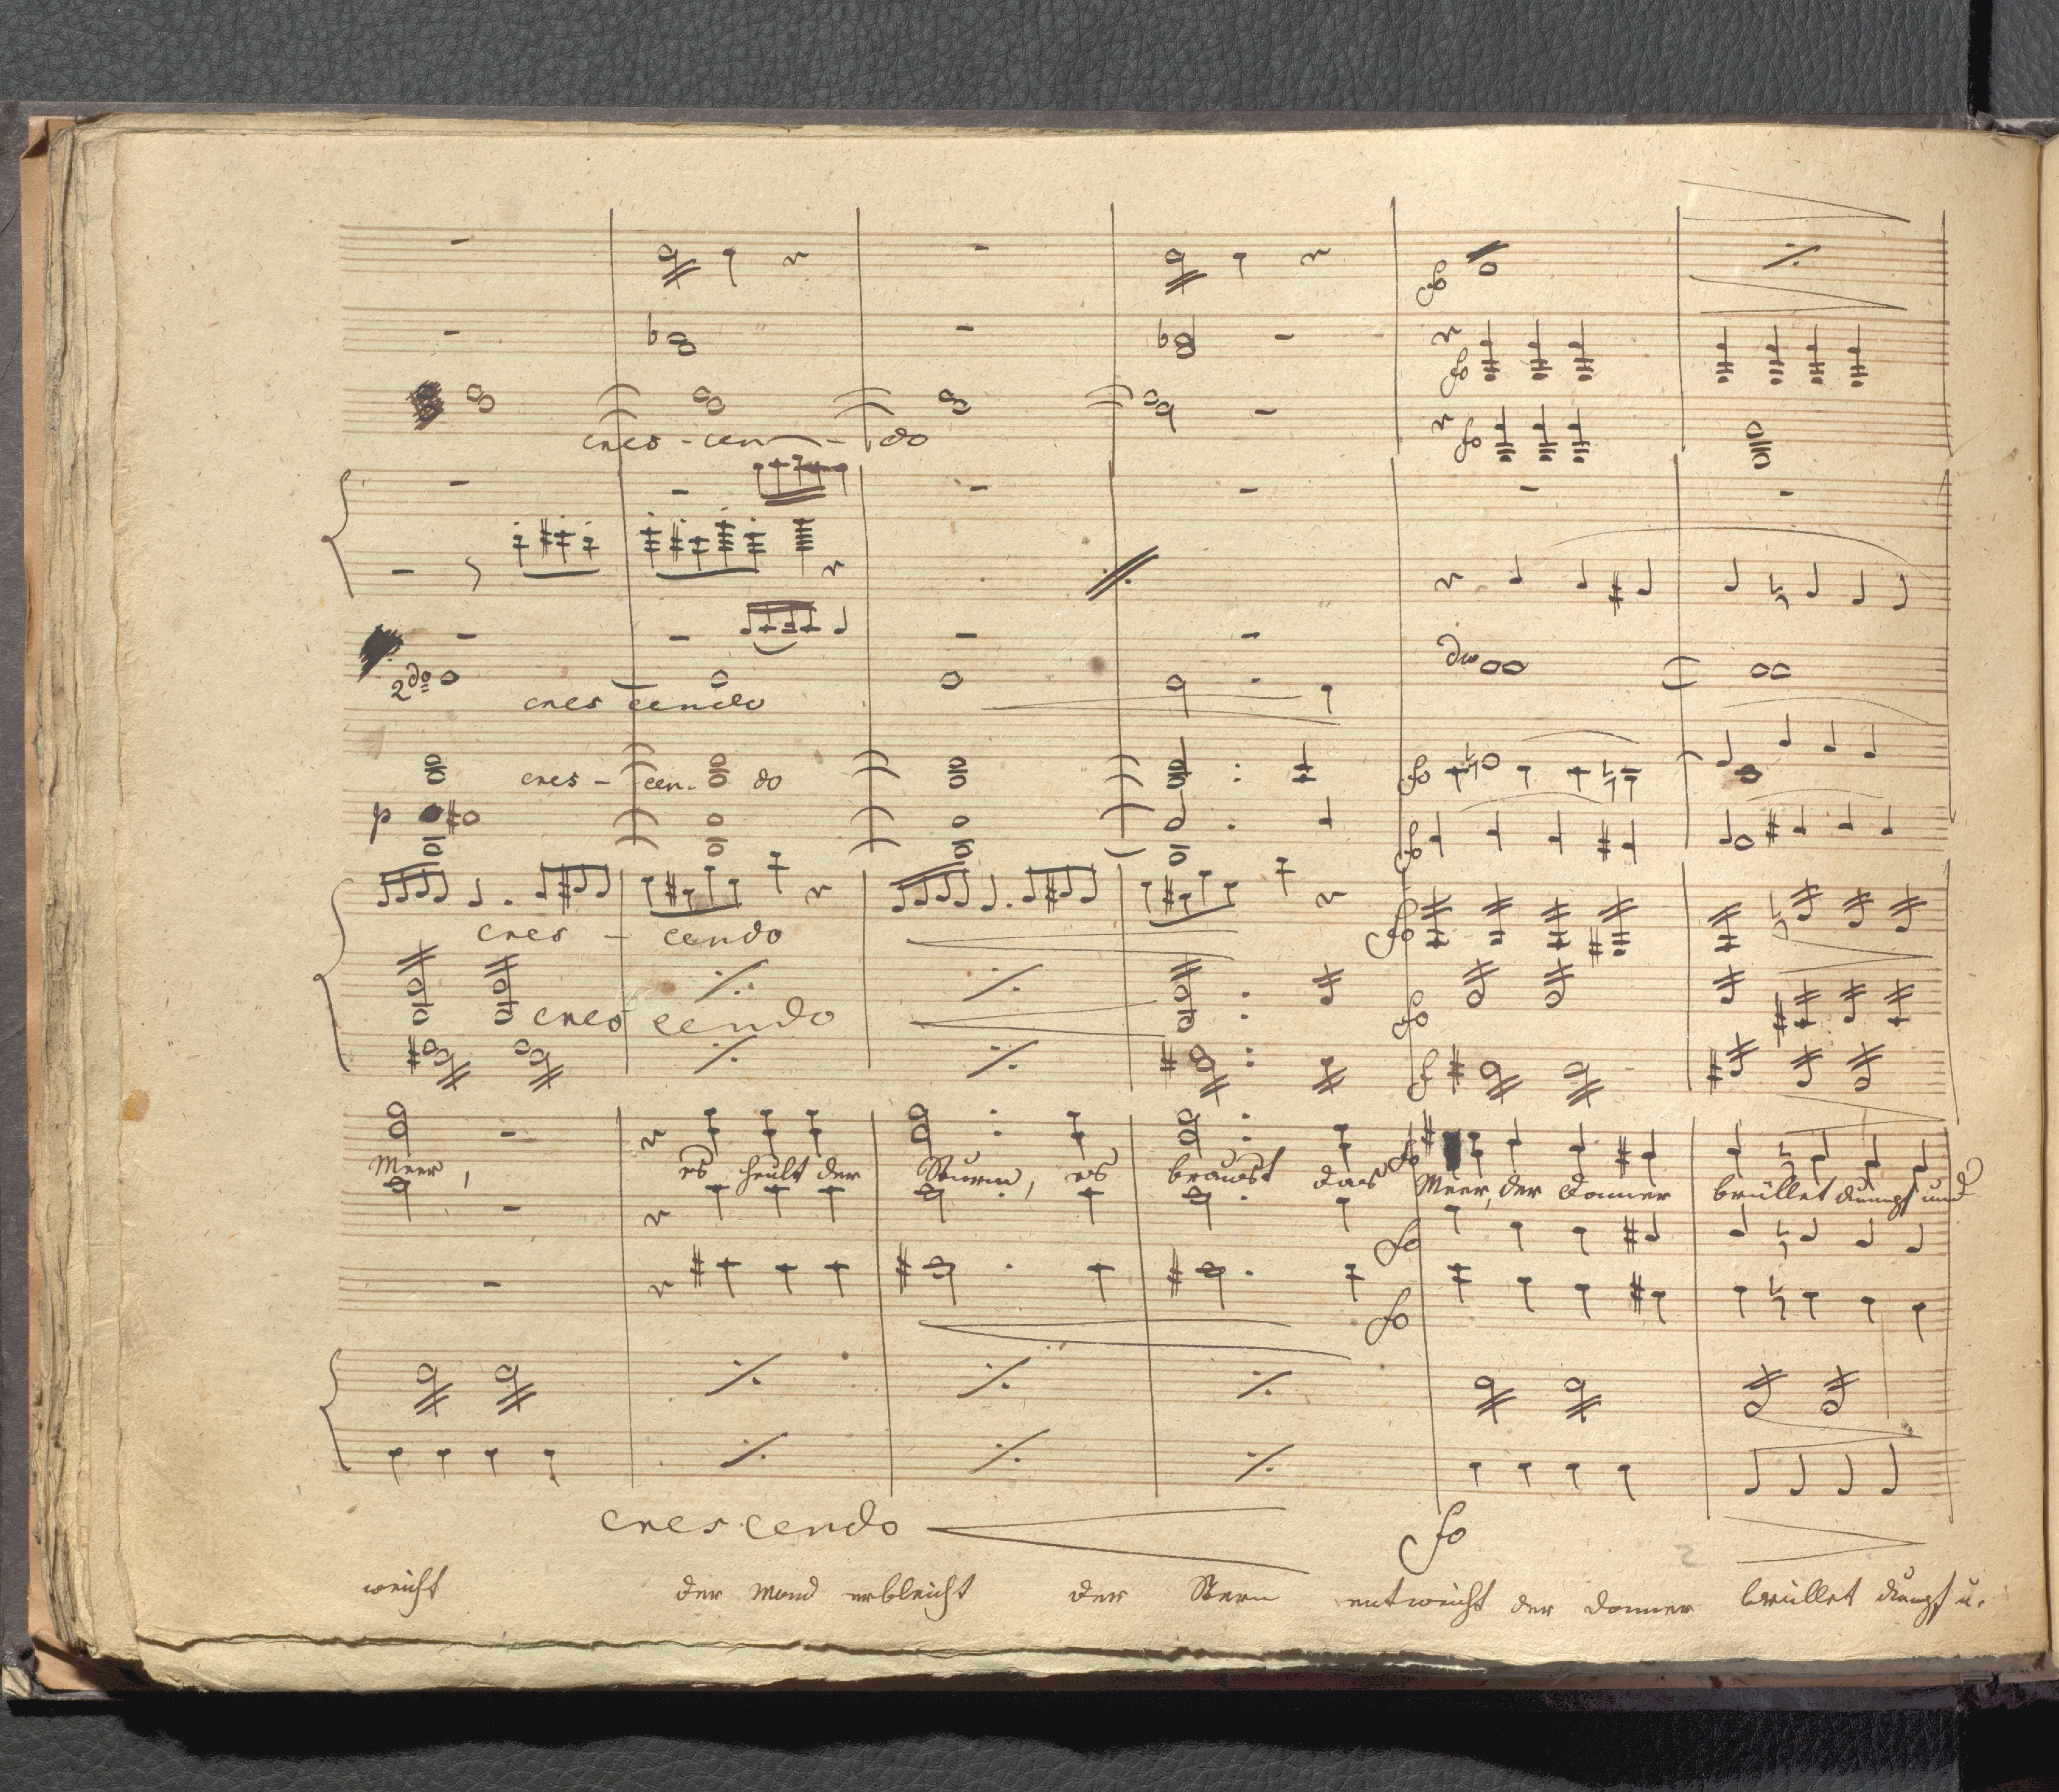 fo
fo
cres - cen - do
fo
dw
2do
cres cendo
cres - cen. do
fo
p
fo
cres - cendo
fo
cres cendo
fo
f
Meer, es heult der Sturm, es braust das Meer, der Donner brüllet dumpf und
fo
fo
fo
crescendo
fo
2
weicht der Mond erbleicht der Stern entweicht der Donner brüllet dumpf u.